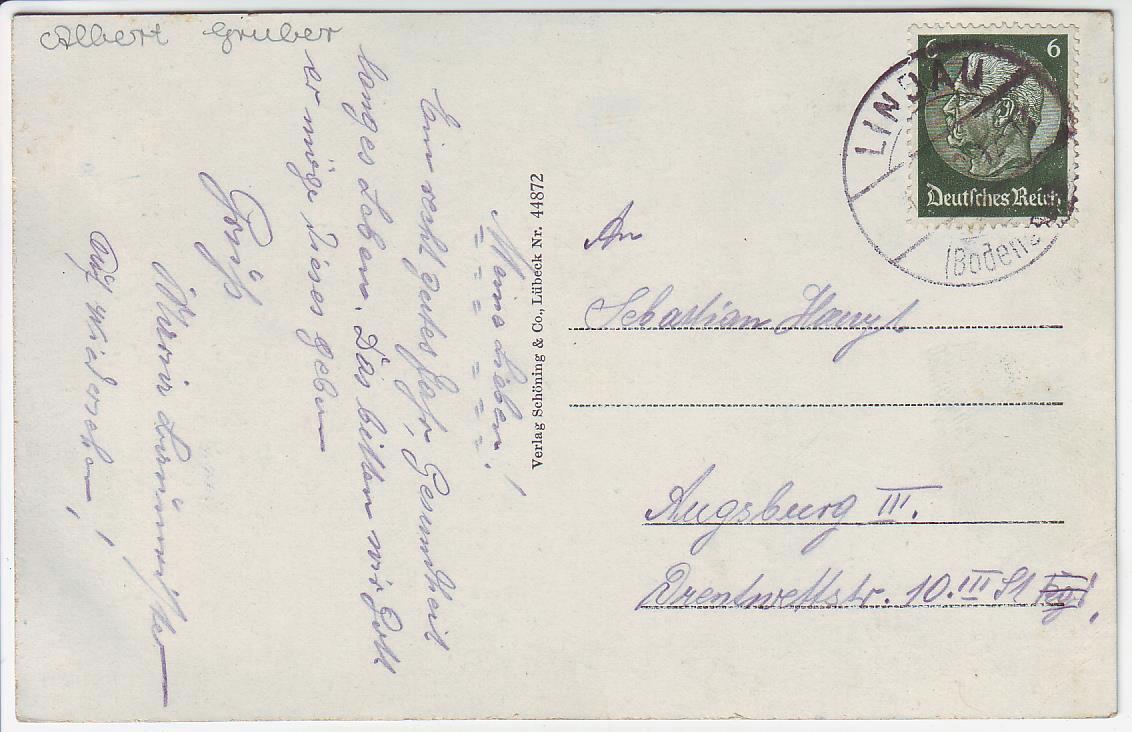 Albert Gruber
Meine Lieben!
Ein recht gutes Jahr, Gesundheit
langes Leben. Das bitten wir Gott
er möge dieses geben
Gruß
Auf Wiedersehen!
Verlag Schöning & Co., Lübeck Nr. 44872
6 6
Deutsches Reich
LINDAU
(Bodens
An
Sebastian
Augsburg III.
Drentwettstr. 10. III St